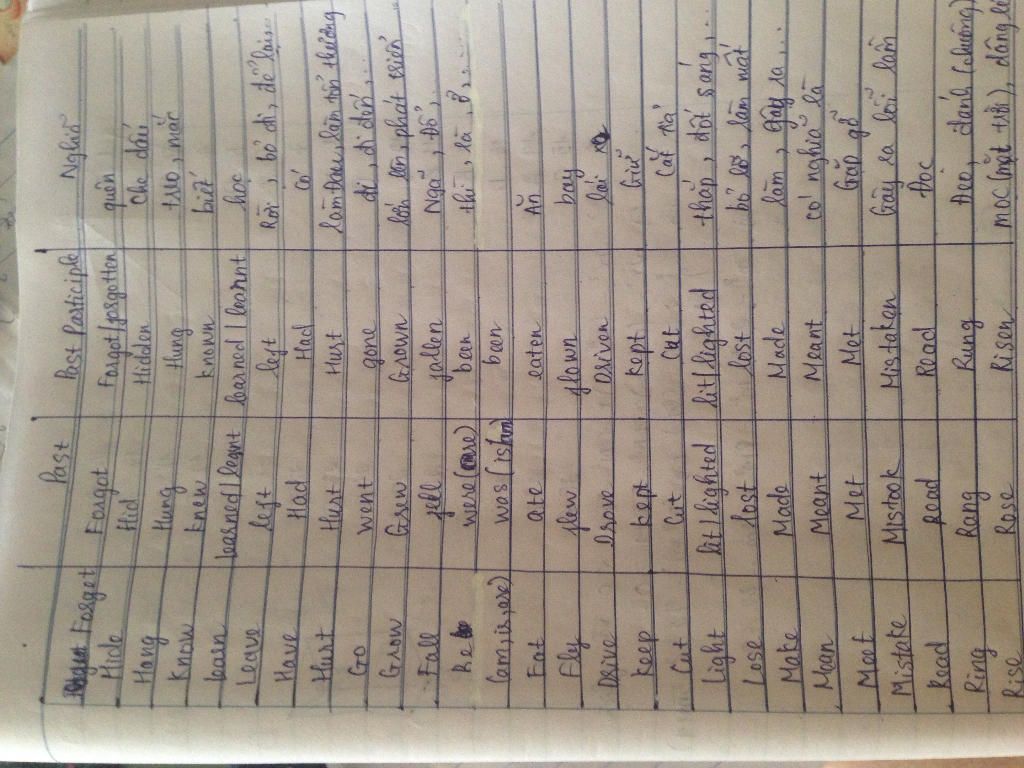 Past Past Participle Nghĩa
Forget Forgot Forgot/forgotten quên
Hide Hid Hidden Che dấu
Hang Hung Hung treo, mắc
Know knew known biết
learn learned/learnt learned/learnt học
Leave left left Rời, bỏ đi, để lại...
Have Had Had có
Hurt Hurt Hurt làm đau, làm tổn thương
Go went gone đi, đi đến,...
Grow Grew Grown lớn lên, phát triển
Fall fell fallen Ngã, đổ,..
Be were(are) been thì, là, ở,...
(am, is, are) was (is/am been
Eat ate eaten Ăn
Fly flew flown bay
Drive Drove Driven lái
keep kept kept Giữ
Cut Cut Cut Cắt
Light lit/lighted lit/lighted thắp, đốt sáng,...
Lose lost lost bỏ lỡ, làm mất
Make Made Made làm, gây ra...
Mean Meant Meant có nghĩa là
Meet Met Met Gặp gỡ
Mistake Mistook Mistaken Gây ra lỗi lầm
Read Read Read Đọc
Ring Rang Rung Reo, đánh (chuông)
Rise Rose Risen mọc (mặt trời), dâng lê